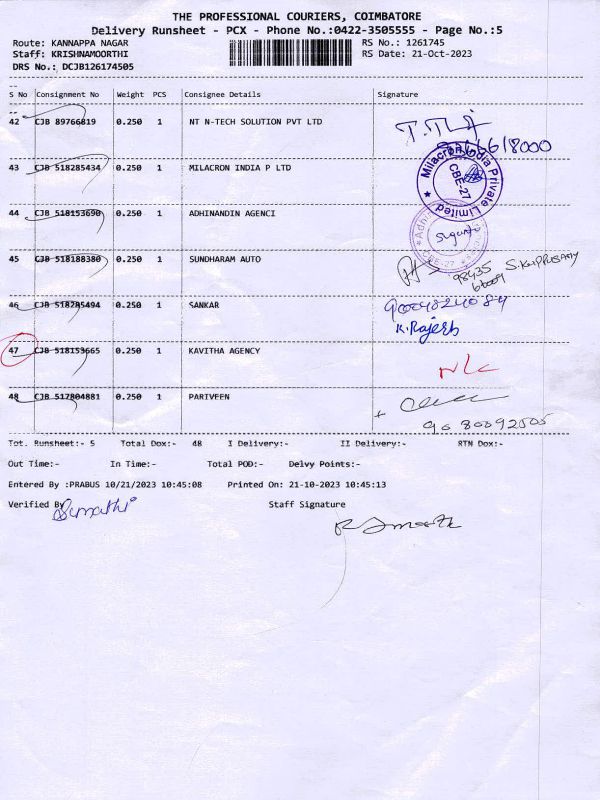 THE PROFESSIONAL COURIERS, COIMBATORE
Delivery Runsheet - PCX - Phone No.:0422-3505555 - Page No.:5
Route: KANNAPPA NAGAR RS No.: 1261745
Staff: KRISHNAMOORTHI RS Date: 21-Oct-2023
DRS No.: DCJB126174505
S No Consignment No Weight PCS Consignee Details Signature
42 CJB 89766819 0.250 1 NT N-TECH SOLUTION PVT LTD
43 CJB 518285434 0.250 1 MILACRON INDIA P LTD
Milacron India Private Limited
CBE-27
44 CJB 518153690 0.250 1 ADHINANDIN AGENCI
45 CJB 518188380 0.250 1 SUNDHARAM AUTO
98435
S.KUPPUSAMY
46 CJB 518285494 0.250 1 SANKAR
K.Rajesh
47 CJB 518153665 0.250 1 KAVITHA AGENCY
NLC
48 CJB 517804881 0.250 1 PARIVEEN
9080092505
Tot. Runsheet:- 5 Total Dox:- 48 I Delivery:- II Delivery:- RTN Dox:-
Out Time:- In Time:- Total POD:- Delvy Points:-
Entered By :PRABUS 10/21/2023 10:45:08 Printed On: 21-10-2023 10:45:13
Verified By Sumathi Staff Signature